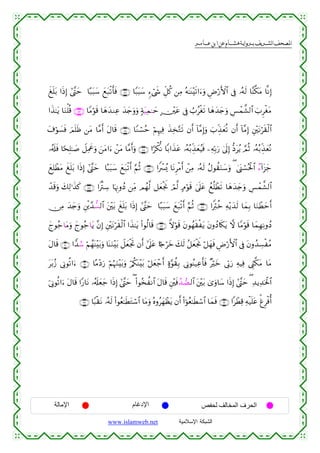 المصحف الشريف برواية هشام عن ابن عامر
إِنَّا مَكَّنَّا لَهُۥ فِي ٱلْأَرْضِ وَءَاتَيْنَٰهُ مِن كُلِّ شَيْءٍ سَبَبًا ۝ فَأَتْبَعَ سَبَبًا حَتَّىٰٓ إِذَا بَلَغَ
مَغْرِبَ ٱلشَّمْسِ وَجَدَهَا تَغْرُبُ فِي عَيْنٍ حَٰمِيَةٍ وَوَجَدَ عِندَهَا قَوْمًا ۝ قُلْنَا يَٰذَا
ٱلْقَرْنَيْنِ إِمَّآ أَن تُعَذِّبَ وَإِمَّآ أَن تَتَّخِذَ فِيهِمْ حُسْنًا ۝ قَالَ أَمَّا مَن ظَلَمَ فَسَوْفَ
نُعَذِّبُهُۥ ثُمَّ يُرَدُّ إِلَىٰ رَبِّهِۦ فَيُعَذِّبُهُۥ عَذَابًا نُّكُرًا ۝ وَأَمَّا مَنْ ءَامَنَ وَعَمِلَ صَٰلِحًا فَلَهُۥ
جَزَآءُ ٱلْحُسْنَىٰ وَسَنَقُولُ لَهُۥ مِنْ أَمْرِنَا يُسْرًا ۝ ثُمَّ أَتْبَعَ سَبَبًا حَتَّىٰٓ إِذَا بَلَغَ مَطْلِعَ
ٱلشَّمْسِ وَجَدَهَا تَطْلُعُ عَلَىٰ قَوْمٍ لَّمْ نَجْعَل لَّهُم مِّن دُونِهَا سِتْرًا ۝ كَذَٰلِكَ وَقَدْ
أَحَطْنَا بِمَا لَدَيْهِ خُبْرًا ۝ ثُمَّ أَتْبَعَ سَبَبًا حَتَّىٰٓ إِذَا بَلَغَ بَيْنَ ٱلسُّدَّيْنِ وَجَدَ مِن
دُونِهِمَا قَوْمًا لَّا يَكَادُونَ يَفْقَهُونَ قَوْلًا ۝ قَالُوا۟ يَٰذَا ٱلْقَرْنَيْنِ إِنَّ يَاجُوجَ وَمَاجُوجَ
مُفْسِدُونَ فِي ٱلْأَرْضِ فَهَلْ نَجْعَلُ لَكَ خَرْجًا عَلَىٰٓ أَن تَجْعَلَ بَيْنَنَا وَبَيْنَهُمْ سُدًّا ۝ قَالَ
مَا مَكَّنِّي فِيهِ رَبِّي خَيْرٌ فَأَعِينُونِي بِقُوَّةٍ أَجْعَلْ بَيْنَكُمْ وَبَيْنَهُمْ رَدْمًا ۝ ءَاتُونِي زُبَرَ
ٱلْحَدِيدِ حَتَّىٰٓ إِذَا سَاوَىٰ بَيْنَ ٱلصُّدُفَيْنِ قَالَ ٱنفُخُوا۟ حَتَّىٰٓ إِذَا جَعَلَهُۥ نَارًا قَالَ ءَاتُونِي
أُفْرِغْ عَلَيْهِ قِطْرًا ۝ فَمَا ٱسْطَٰعُوٓا۟ أَن يَظْهَرُوهُ وَمَا ٱسْتَطَٰعُوا۟ لَهُۥ نَقْبًا ۝
الحرف المخالف لحفص الإدغام الإمالة
www.islamweb.net الشبكة الإسلامية